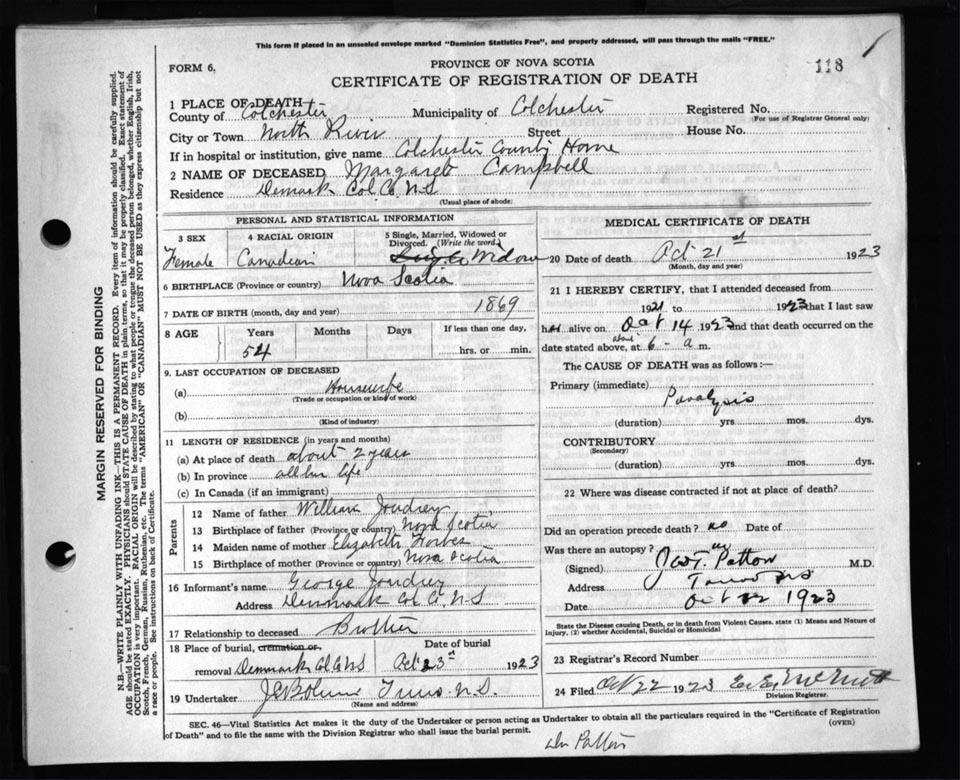 This form if placed in an unsealed envelope marked "Dominion Statistics Free", and properly addressed, will pass through the mails "FREE."
FORM 6.
PROVINCE OF NOVA SCOTIA
118
CERTIFICATE OF REGISTRATION OF DEATH
1 PLACE OF DEATH—
County of Colchester Municipality of Colchester Registered No.
(For use of Registrar General only)
City or Town North River Street House No.
If in hospital or institution, give name Colchester County Home
2 NAME OF DECEASED Margaret Campbell
Residence Demark Col. Co. N.S
(Usual place of abode)
MARGIN RESERVED FOR BINDING
N.B.—WRITE PLAINLY WITH UNFADING INK—THIS IS A PERMANENT RECORD. Every item of information should be carefully supplied.
AGE should be stated EXACTLY. PHYSICIANS should STATE CAUSE OF DEATH in plain terms, so that it may be properly classified. Exact statement of
OCCUPATION is very important. RACIAL ORIGIN will be described by stating to what people or tongue the deceased person belonged, whether English, Irish,
Scotch, French, German, Russian, Ruthenian, etc. The terms "AMERICAN" OR "CANADIAN" MUST NOT BE USED as they express citizenship but not
a race or people. See instructions on back of Certificate.
PERSONAL AND STATISTICAL INFORMATION
3 SEX
Female
4 RACIAL ORIGIN
Canadian
5 Single, Married, Widowed or
Divorced. (Write the word)
Single Widow
6 BIRTHPLACE (Province or country) Nova Scotia
7 DATE OF BIRTH (month, day and year) 1869
8 AGE Years Months Days If less than one day,
54 hrs. or min.
9. LAST OCCUPATION OF DECEASED
(a) Housewife
(Trade or occupation or kind of work)
(b)
(Kind of industry)
11 LENGTH OF RESIDENCE (in years and months)
(a) At place of death about 2 years
(b) In province all her life
(c) In Canada (if an immigrant)
Parents
12 Name of father William Joudrey
13 Birthplace of father (Province or country) Nova Scotia
14 Maiden name of mother Elizabeth Forbes
15 Birthplace of mother (Province or country) Nova Scotia
16 Informant's name George Joudrey
Address Denmark Col. Co. N.S
17 Relationship to deceased Brother
18 Place of burial, cremation or Date of burial
removal Denmark Col Co NS Oct 23rd 1923
19 Undertaker Truro N.S.
(Name and address)
MEDICAL CERTIFICATE OF DEATH
20 Date of death Oct 21st 1923
(Month, day and year)
21 I HEREBY CERTIFY, that I attended deceased from
1921 to 1923 that I last saw
her alive on Oct 14 1923 and that death occurred on the
date stated above, at about 6 - a m.
The CAUSE OF DEATH was as follows:—
Primary (immediate)
Paralysis
(duration) yrs mos. dys.
CONTRIBUTORY
(Secondary)
(duration) yrs mos. dys.
22 Where was disease contracted if not at place of death?
Did an operation precede death? no Date of
Was there an autopsy? no
(Signed) Patton M.D.
Address Truro NS
Date Oct 22 1923
State the Disease causing Death, or in death from Violent Causes, state (1) Means and Nature of
Injury, (2) whether Accidental, Suicidal or Homicidal
23 Registrar's Record Number
24 Filed Oct 22 1923
Division Registrar.
SEC. 46—Vital Statistics Act makes it the duty of the Undertaker or person acting as Undertaker to obtain all the particulars required in the "Certificate of Registration
of Death" and to file the same with the Division Registrar who shall issue the burial permit.
(OVER)
Dr Patton